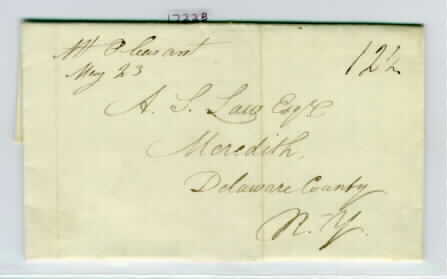 17228
Mt Pleasant
May 23
12½
A. S. Law Esqr
Meredith,
Delaware County
N.Y.